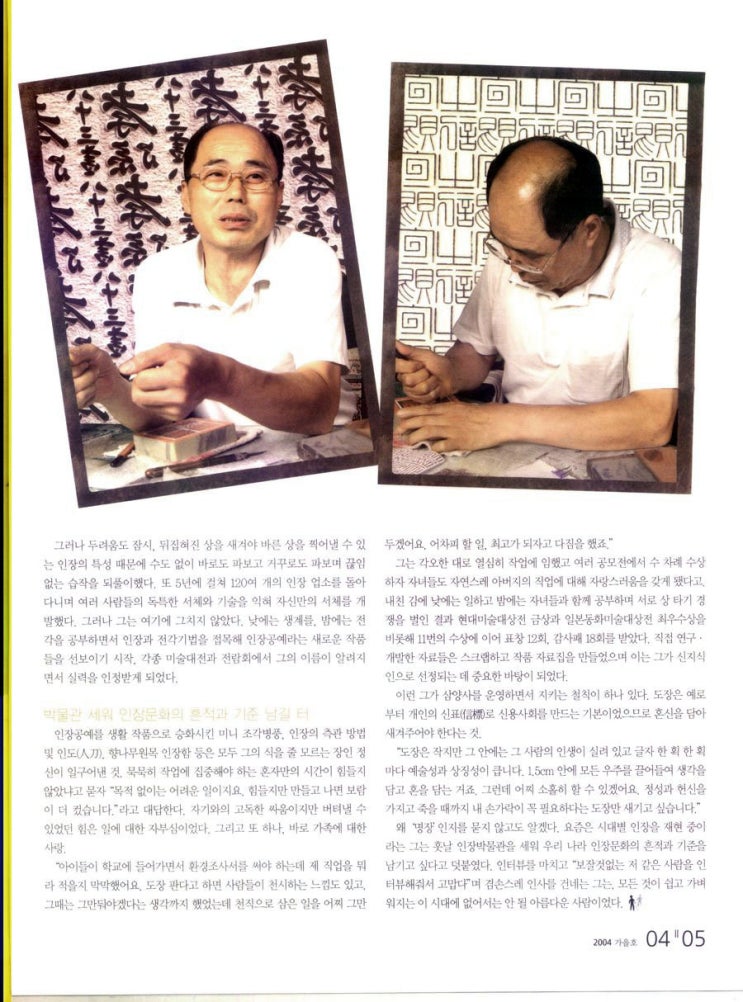 그러나 두려움도 잠시, 뒤집혀진 상을 새겨야 바른 상을 찍어낼 수 있
는 인장의 특성 때문에 수도 없이 바로도 파보고 거꾸로도 파보며 끊임
없는 습작을 되풀이했다. 또 5년에 걸쳐 120여 개의 인장 업소를 돌아
다니며 여러 사람들의 독특한 서체와 기술을 익혀 자신만의 서체를 개
발했다. 그러나 그는 여기에 그치지 않았다. 낮에는 생계를, 밤에는 전
각을 공부하면서 인장과 전각기법을 접목해 인장공예라는 새로운 작품
들을 선보이기 시작, 각종 미술대전과 전람회에서 그의 이름이 알려지
면서 실력을 인정받게 되었다.
박물관 세워 인장문화의 흔적과 기준 남길 터
인장공예를 생활 작품으로 승화시킨 미니 조각병풍, 인장의 측관 방법
및 인도(人刀), 향나무원목 인장함 등은 모두 그의 식을 줄 모르는 장인 정
신이 일구어낸 것. 묵묵히 작업에 집중해야 하는 혼자만의 시간이 힘들지
않았냐고 묻자 “목적 없이는 어려운 일이지요. 힘들지만 만들고 나면 보람
이 더 컸습니다.”라고 대답한다. 자기와의 고독한 싸움이지만 버텨낼 수
있었던 힘은 일에 대한 자부심이었다. 그리고 또 하나, 바로 가족에 대한
사랑.
“아이들이 학교에 들어가면서 환경조사서를 써야 하는데 제 직업을 뭐
라 적을지 막막했어요. 도장 판다고 하면 사람들이 천시하는 느낌도 있고,
그때는 그만둬야겠다는 생각까지 했었는데 천직으로 삼은 일을 어찌 그만
두겠어요. 어차피 할 일, 최고가 되자고 다짐을 했죠.”
그는 각오한 대로 열심히 작업에 임했고 여러 공모전에서 수 차례 수상
하자 자녀들도 자연스레 아버지의 작업에 대해 자랑스러움을 갖게 됐다고.
내친 김에 낮에는 일하고 밤에는 자녀들과 함께 공부하며 서로 상 타기 경
쟁을 벌인 결과 현대미술대상전 금상과 일본동화미술대상전 최우수상을
비롯해 11번의 수상에 이어 표창 12회, 감사패 18회를 받았다. 직접 연구·
개발한 자료들은 스크랩하고 작품 자료집을 만들었으며 이는 그가 신지식
인으로 선정되는 데 중요한 바탕이 되었다.
이런 그가 삼양사를 운영하면서 지키는 철칙이 하나 있다. 도장은 예로
부터 개인의 신표(信標)로 신용사회를 만드는 기본이었으므로 혼신을 담아
새겨주어야 한다는 것.
“도장은 작지만 그 안에는 그 사람의 인생이 실려 있고 글자 한 획 한 획
마다 예술성과 상징성이 큽니다. 1.5cm 안에 모든 우주를 끌어들여 생각을
담고 혼을 담는 거죠. 그런데 어찌 소홀히 할 수 있겠어요. 정성과 헌신을
가지고 죽을 때까지 내 손가락이 꼭 필요하다는 도장만 새기고 싶습니다.”
왜 ‘명장’인지를 묻지 않고도 알겠다. 요즘은 시대별 인장을 재현 중이
라는 그는 훗날 인장박물관을 세워 우리 나라 인장문화의 흔적과 기준을
남기고 싶다고 덧붙였다. 인터뷰를 마치고 “보잘것없는 저 같은 사람을 인
터뷰해줘서 고맙다”며 겸손스레 인사를 건네는 그는, 모든 것이 쉽고 가벼
워지는 이 시대에 없어서는 안 될 아름다운 사람이었다.
2004 가을호 04 05